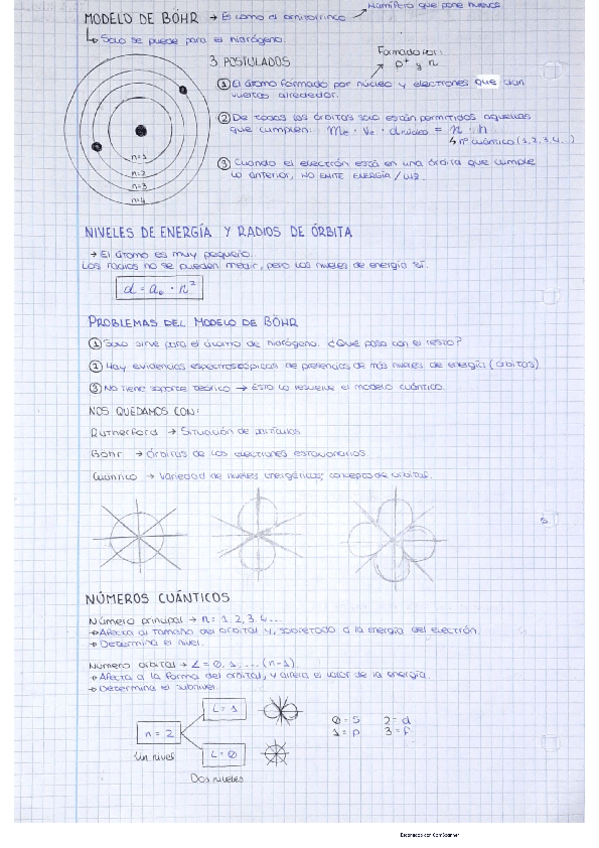 Mamífero que pone huevos
MODELO DE BÖHR → Es como el ornitorrinco
Solo se puede para el hidrógeno.
Formado por:
p+ y n
3 POSTULADOS
① El átomo formado por núcleo y electrones que dan
vueltas alrededor.
② De todas las órbitas solo están permitidas aquellas
que cumplen: Me · Ve · dnúcleo = n · h
↳ nº cuántico (1, 2, 3, 4...)
③ Cuando el electrón está en una órbita que cumple
lo anterior, NO EMITE ENERGÍA / luz.
n=1
n=2
n=3
n=4
NIVELES DE ENERGÍA Y RADIOS DE ÓRBITA
→ El átomo es muy pequeño.
Los radios no se pueden medir, pero los niveles de energía sí.
d = a₀ · n²
PROBLEMAS DEL MODELO DE BÖHR
① Solo sirve para el átomo de hidrógeno. ¿Qué pasa con el resto?
② Hay evidencias espectroscópicas de presencias de más niveles de energía (órbitas)
③ No tiene soporte teórico → Esto lo resuelve el modelo cuántico.
NOS QUEDAMOS CON:
Rutherford → Situación de partículas
Bohr → Órbitas de los electrones estacionarios.
Cuántico → Variedad de niveles energéticos; concepto de orbital.
NÚMEROS CUÁNTICOS
Número principal → n = 1, 2, 3, 4...
→ Afecta al tamaño del orbital y, sobretodo a la energía del electrón.
→ Determina el nivel.
Número orbital → L = 0, 1, ... (n-1)
→ Afecta a la forma del orbital, y altera el valor de la energía.
→ Determina el subnivel.
L = 1
n = 2
0 = s 2 = d
1 = p 3 = f
L = 0
Un nivel
Dos niveles
Escaneado con CamScanner